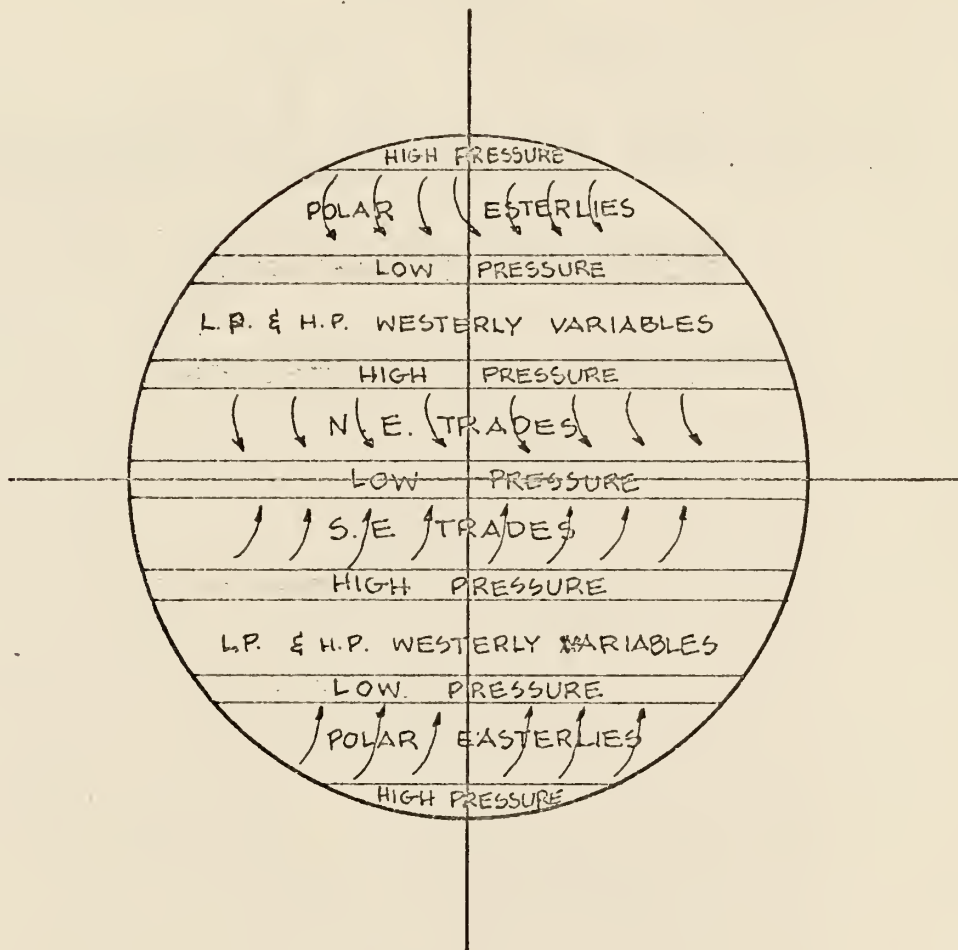 HIGH PRESSURE
POLAR ESTERLIES
LOW PRESSURE
L.P. & H.P. WESTERLY VARIABLES
HIGH PRESSURE
N.E. TRADES
LOW PRESSURE
S.E TRADES
HIGH PRESSURE
L.P. & H.P. WESTERLY VARIABLES
LOW. PRESSURE
POLAR EASTERLIES
HIGH PRESSURE